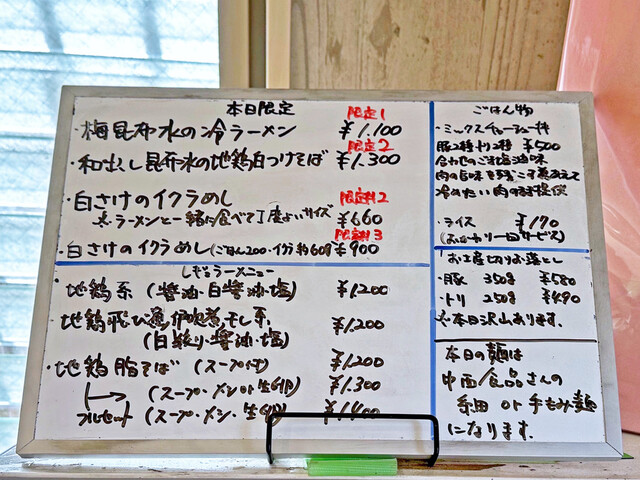 本日限定
限定1
・梅昆布水の冷ラーメン ¥1,100
限定2
・和出し昆布水の地鶏白つけそば ¥1,300
限定 2
・白さけのイクラめし
ラーメンと一緒に食べて丁度よいサイズ ¥660
限定 3
・白さけのイクラめし(ごはん200・イクラ約60g) ¥900
ラーメニュー
・地鶏系(醤油・白醤油・塩) ¥1,200
・地鶏飛び魚伊吹煮干し系 ¥1,200
(白絞り・醤油・塩)
・地鶏脂そば(スープ付) ¥1,200
(スープ・メン 生 ¥1,300
フルセット(スープ・メン・生 ¥1,400
ごはん物
・ミックスチャーシュー丼
豚2種トリ2種 ¥500
合わせのごま醤油味
肉の旨味を
冷めたい肉のまま提供
・ライス ¥170
(おかわり一回サービス)
お土産切りお落とし
・豚 350g ¥580
・トリ 250g ¥490
本日沢山あります。
本日の麺は
中西食品さんの
細 or 手もみ麺
になります。